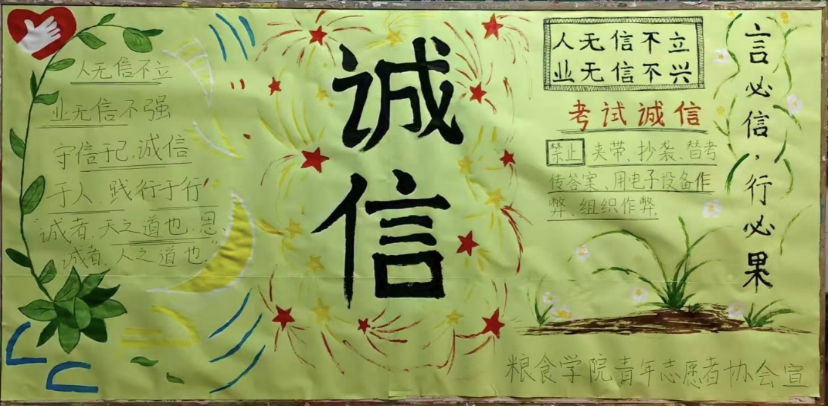 人无信不立
业无信不强
守信于己,诚信
于人,践行于行
"诚者,天之道也,思
诚者,人之道也."
诚信
人无信不立
业无信不兴
考试诚信
禁止 夹带、抄袭、替考
传答案、用电子设备作
弊、组织作弊
言必信,行必果
粮食学院青年志愿者协会宣